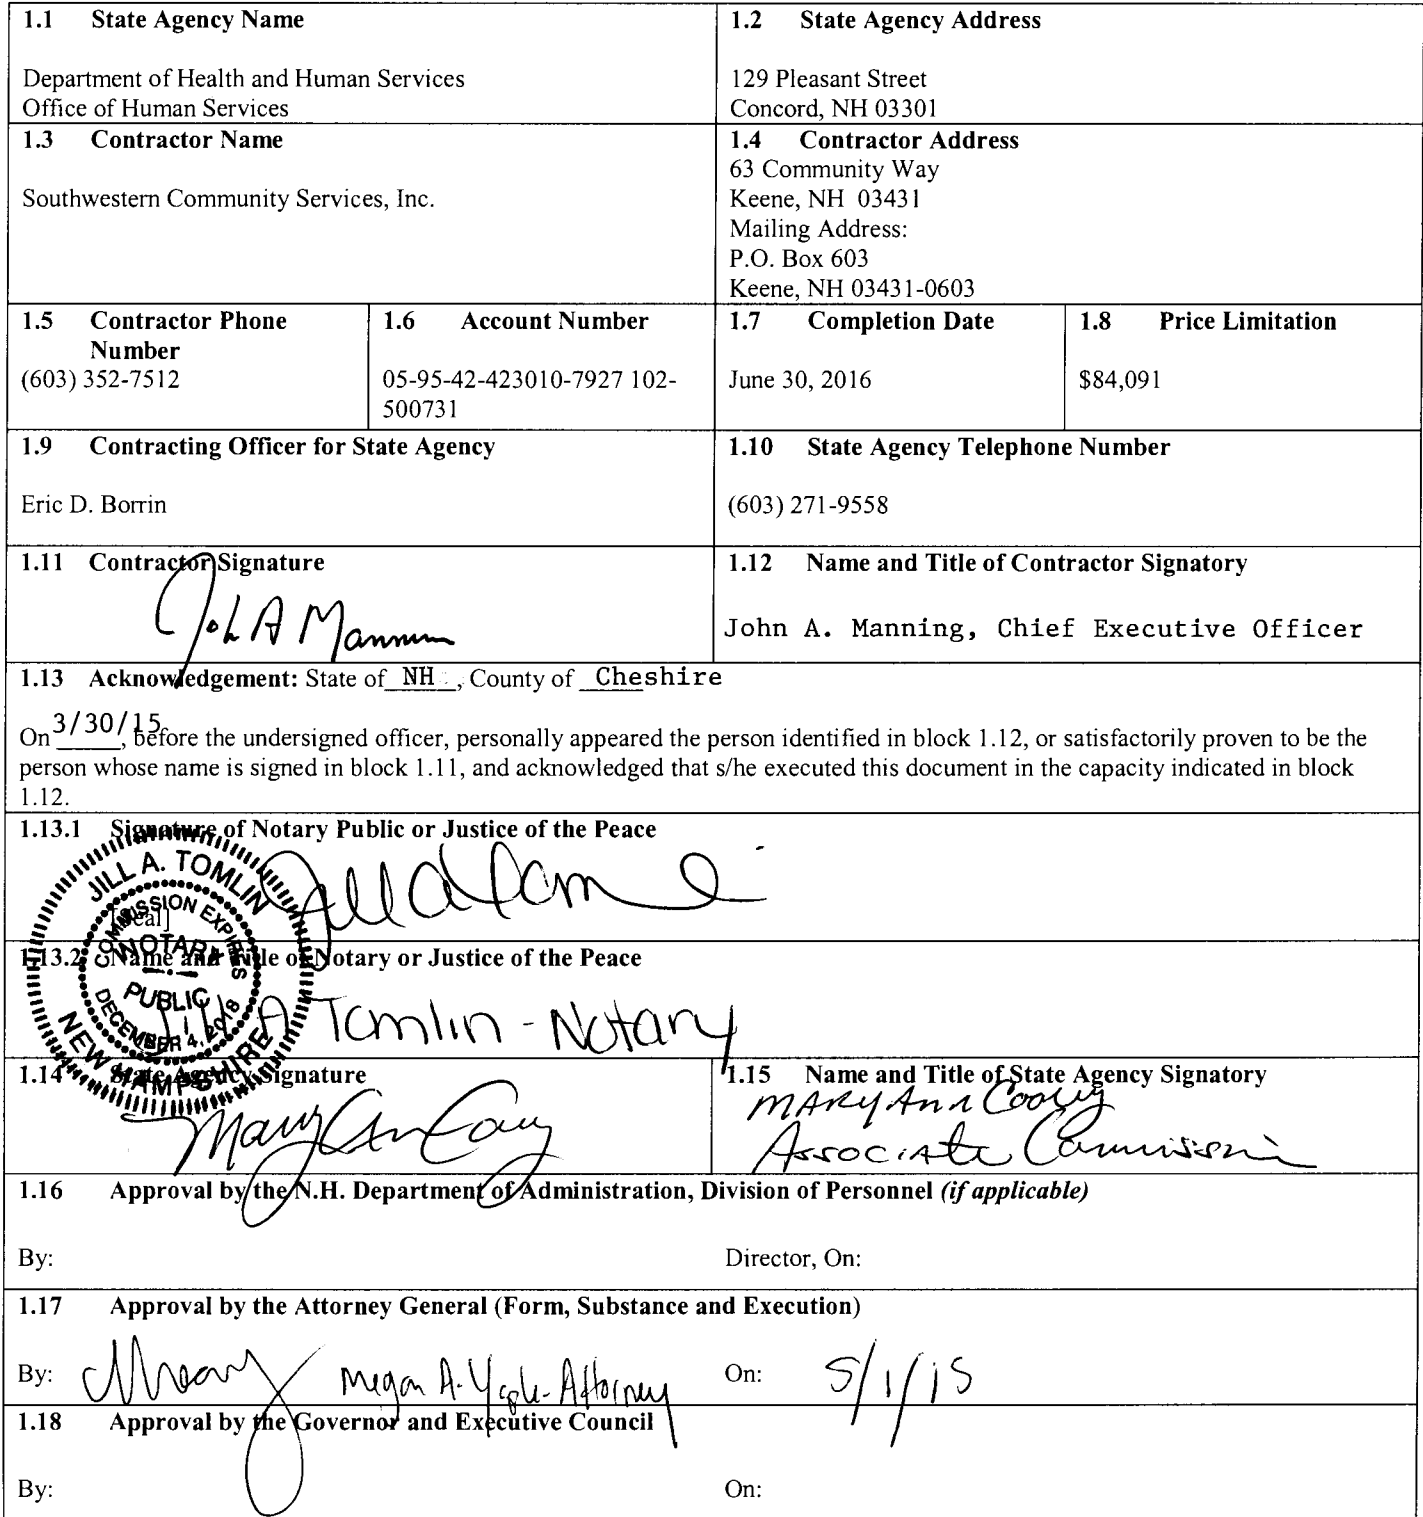 1.1 State Agency Name
Department of Health and Human Services
Office of Human Services
1.2 State Agency Address
129 Pleasant Street
Concord, NH 03301
1.3 Contractor Name
Southwestern Community Services, Inc.
1.4 Contractor Address
63 Community Way
Keene, NH 03431
Mailing Address:
P.O. Box 603
Keene, NH 03431-0603
1.5 Contractor Phone
Number
(603) 352-7512
1.6 Account Number
05-95-42-423010-7927 102-
500731
1.7 Completion Date
June 30, 2016
1.8 Price Limitation
$84,091
1.9 Contracting Officer for State Agency
Eric D. Borrin
1.10 State Agency Telephone Number
(603) 271-9558
1.11 Contractor Signature
John A Manning
1.12 Name and Title of Contractor Signatory
John A. Manning, Chief Executive Officer
1.13 Acknowledgement: State of NH, County of Cheshire
On 3/30/15, before the undersigned officer, personally appeared the person identified in block 1.12, or satisfactorily proven to be the
person whose name is signed in block 1.11, and acknowledged that s/he executed this document in the capacity indicated in block
1.12.
1.13.1 Signature of Notary Public or Justice of the Peace
[Seal]
JILL A. TOMLIN
COMMISSION EXPIRES
NOTARY
PUBLIC
DECEMBER 4, 2018
NEW HAMPSHIRE
1.13.2 Name and Title of Notary or Justice of the Peace
Jill A Tomlin - Notary
1.14 State Agency Signature
1.15 Name and Title of State Agency Signatory
Mary Ann Cooney
Associate Commissioner
1.16 Approval by the N.H. Department of Administration, Division of Personnel (if applicable)
By: Director, On:
1.17 Approval by the Attorney General (Form, Substance and Execution)
By: Megan A. Yaple - Attorney On: 5/1/15
1.18 Approval by the Governor and Executive Council
By: On: